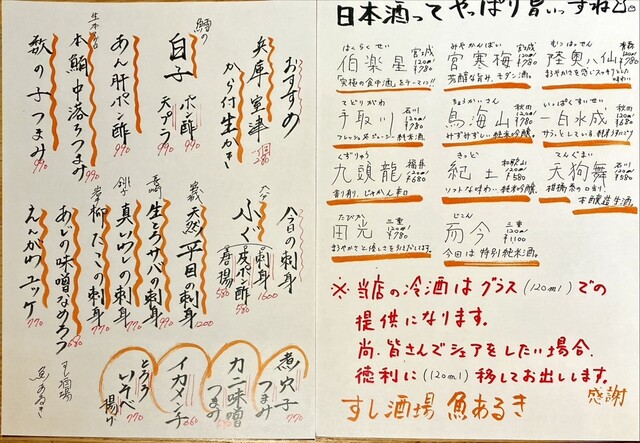 おすすめ
兵庫 室津
から付生かき
1個 280
鱈の
白子 ポン酢 天プラ 990
あん肝ポン酢 990
生本マグロ
本鮪中落ちつまみ 990
数の子つまみ 990
今日の刺身
ふぐ 刺身 1600
皮ポン酢 580
唐揚 980
天然平目の刺身 1200
長崎 生とろサバの刺身 990
銚子 真いわしの刺身 770
柳たこの刺身 770
あじの味噌なめろう 680
えんがわユッケ 770
煮穴子つまみ 770
カニ味噌つまみ
イカメンチ 660
とろろいそべ揚げ 770
すし酒場
魚あるき
日本酒ってやっぱり旨いっすね
はくらくせい 宮城
伯楽星 120ml ¥780
「究極の食中酒」をテーマに!!
みやかんばい 宮城
宮寒梅 120ml ¥780
芳醇な旨み、モダン酒。
むつはっせん 青森
陸奥八仙 120ml ¥780
まろやかさを感じスッキリとした味わい
てどりがわ 石川
手取川 120ml ¥780
フレッシュ&ジューシー純米酒
ちょうかいさん 秋田
鳥海山 120ml ¥780
みずみずしい純米吟醸。
いっぱくすいせい 秋田
一白水成 120ml ¥680
くずりゅう 福井
九頭龍 120ml ¥680
香り有り、じゃかん辛口
きっど 和歌山
紀土 120ml ¥580
ソフトな味わい純米吟醸。
てんぐまい 石川
天狗舞 120ml ¥680
柑橘系の口当り
本醸造生酒。
たびか 三重
田光 120ml ¥780
まろやかさと優しさを感じます。
じこん 三重
而今 120ml ¥1100
今回は特別純米酒。
※当店の冷酒はグラス(120ml)での
提供になります。
尚、皆さんでシェアをしたい場合、
徳利に(120ml)移してお出しします。
感謝
すし酒場 魚あるき